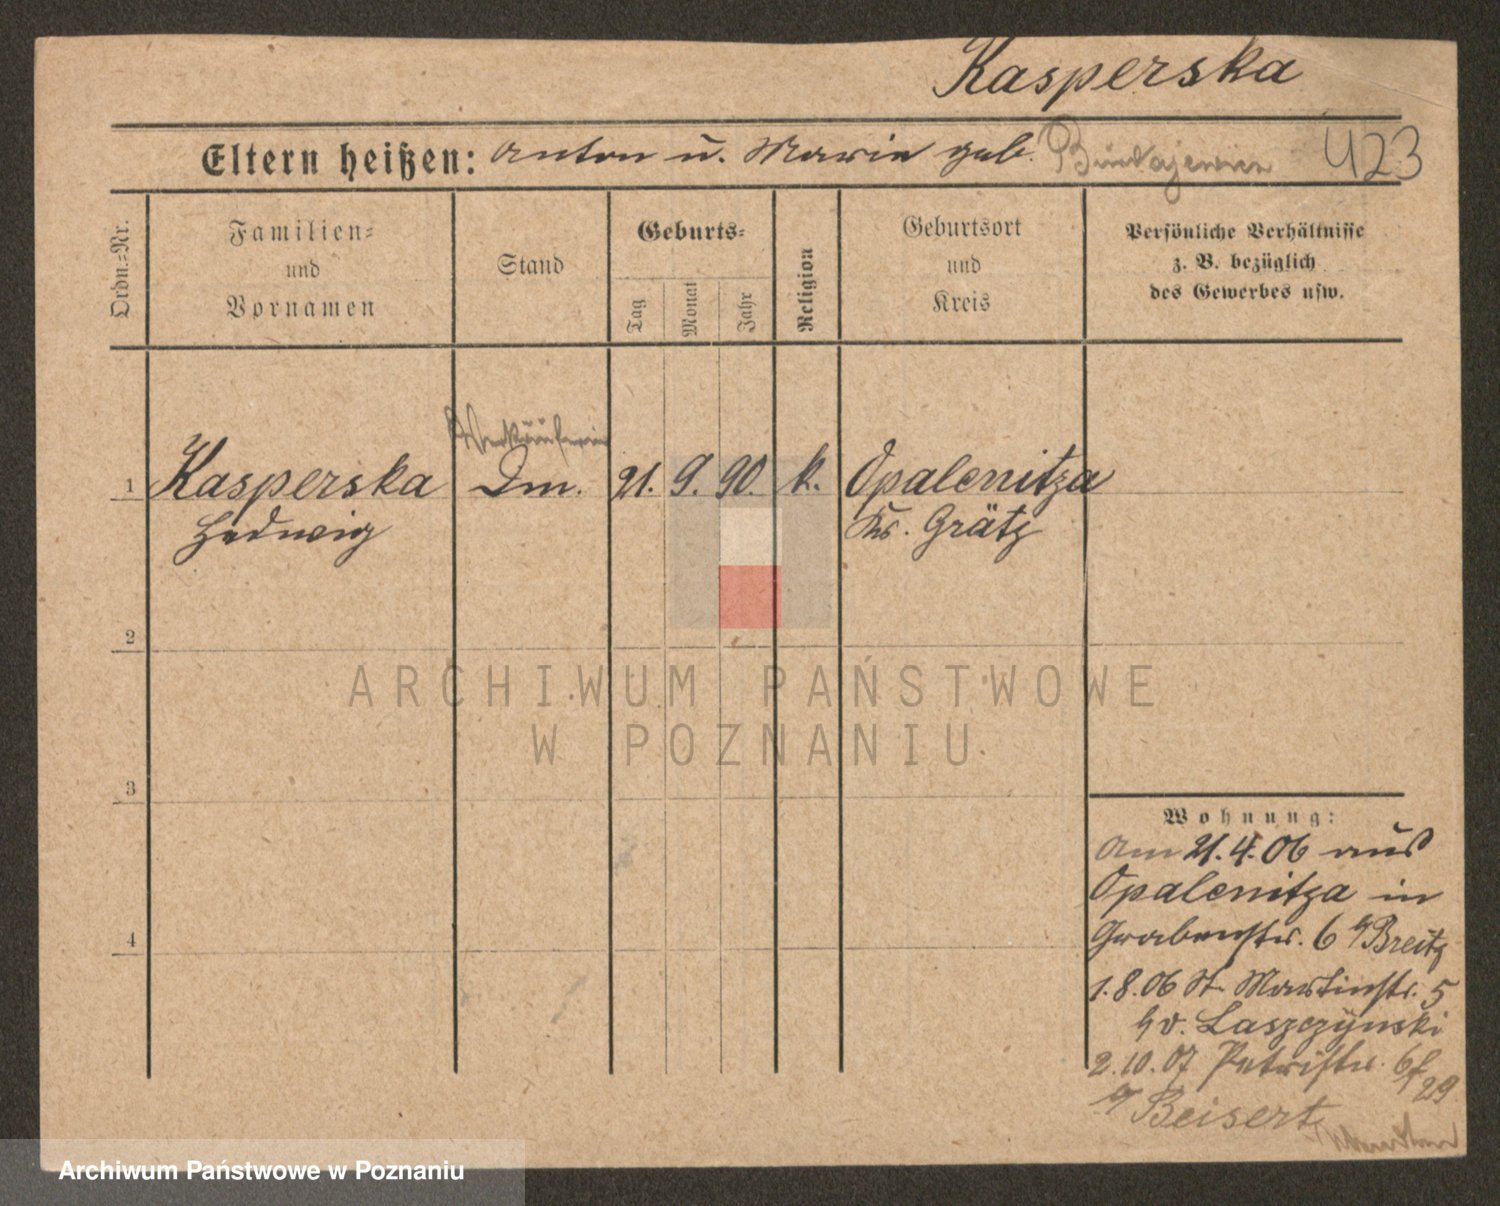 Kasperska
Eltern heißen: Anton u. Marie geb. 423
Ordn.=Nr.
Familien=
und
Vornamen
Stand
Geburts=
Tag
Monat
Jahr
Religion
Geburtsort
und
Kreis
Persönliche Verhältnisse
z. B. bezüglich
des Gewerbes usw.
Verkäuferin
1 Kasperska Dm. 21. 9. 90. k. Opalenitza
Hedwig Krs. Grätz
2
3
4
ARCHIWUM PAŃSTWOWE
W POZNANIU
Wohnung:
Am 21.4.06 aus
Opalenitza in
Grabenstr. 6 b/ Breitz
1.8.06 St. Martinstr. 5
b/ v. Laszczynski
2.10.07 Petristr. 6
b/ Beisert
29
Archiwum Państwowe w Poznaniu